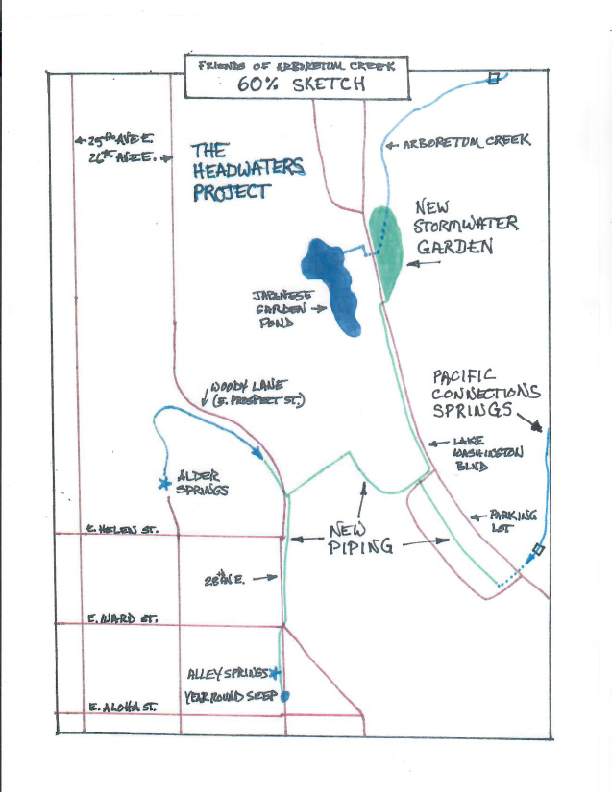 FRIENDS OF ARBORETUM CREEK
60% SKETCH
25TH AVE E.
26TH AVE E.
THE
HEADWATERS
PROJECT
ARBORETUM CREEK
NEW
STORMWATER
GARDEN
JAPANESE
GARDEN
POND
WOODY LANE
(E. PROSPECT ST.)
PACIFIC
CONNECTIONS
SPRINGS
LAKE
WASHINGTON
BLVD
ALDER
SPRINGS
PARKING
LOT
E. HELEN ST.
NEW
PIPING
28TH AVE.
E. WARD ST.
ALLEY SPRINGS
YEAR ROUND SEEP
E. ALOHA ST.